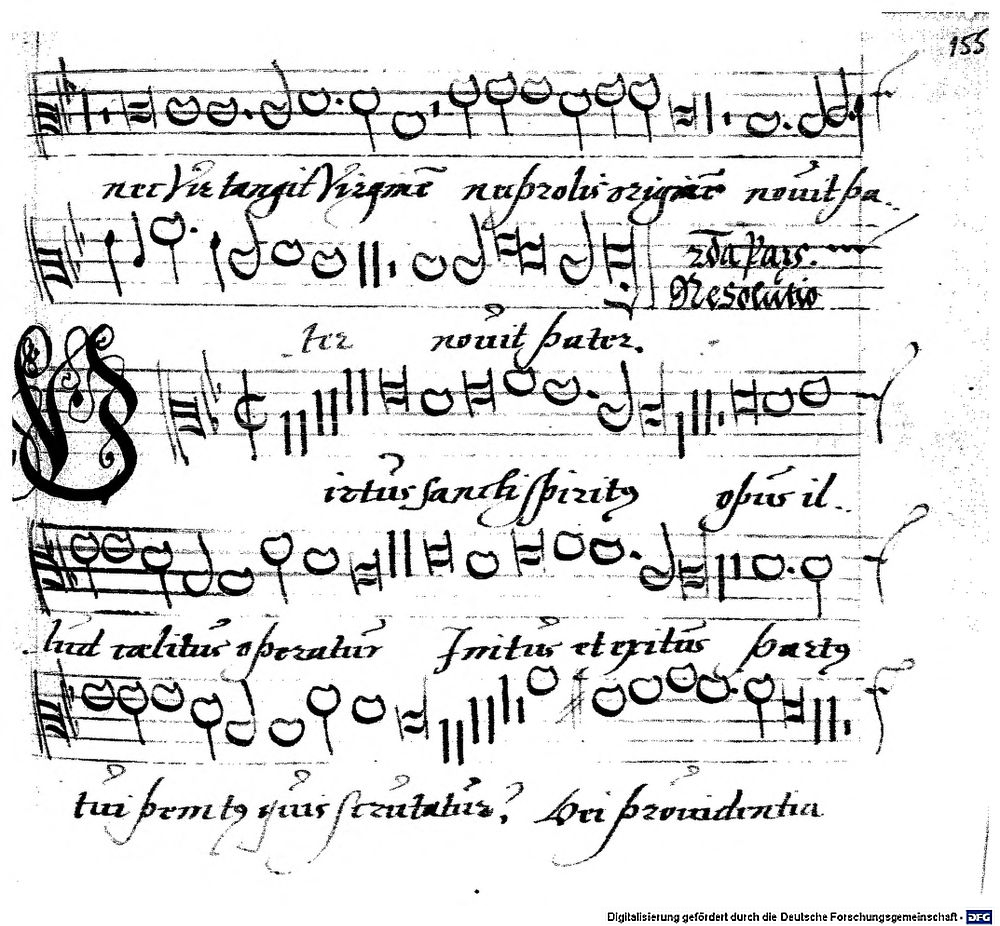 155
nec vir tangit virginē nec prolis originē novit pa..
ter novit pater.
2da Pars.
Resolutio
Virtus sancti spiritꝯ opus il..
lud cælitus operatur Initus et exitus partꝯ
tui penitꝯ quis scrutatur? Dei providentia
Digitalisierung gefördert durch die Deutsche Forschungsgemeinschaft - DFG